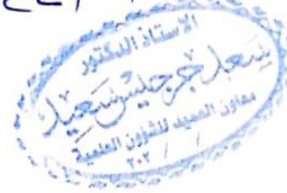 الاستاذ الدكتور
سعد جرجيس سعيد
معاون العميد للشؤون العلمية
/ / ٢٠٢